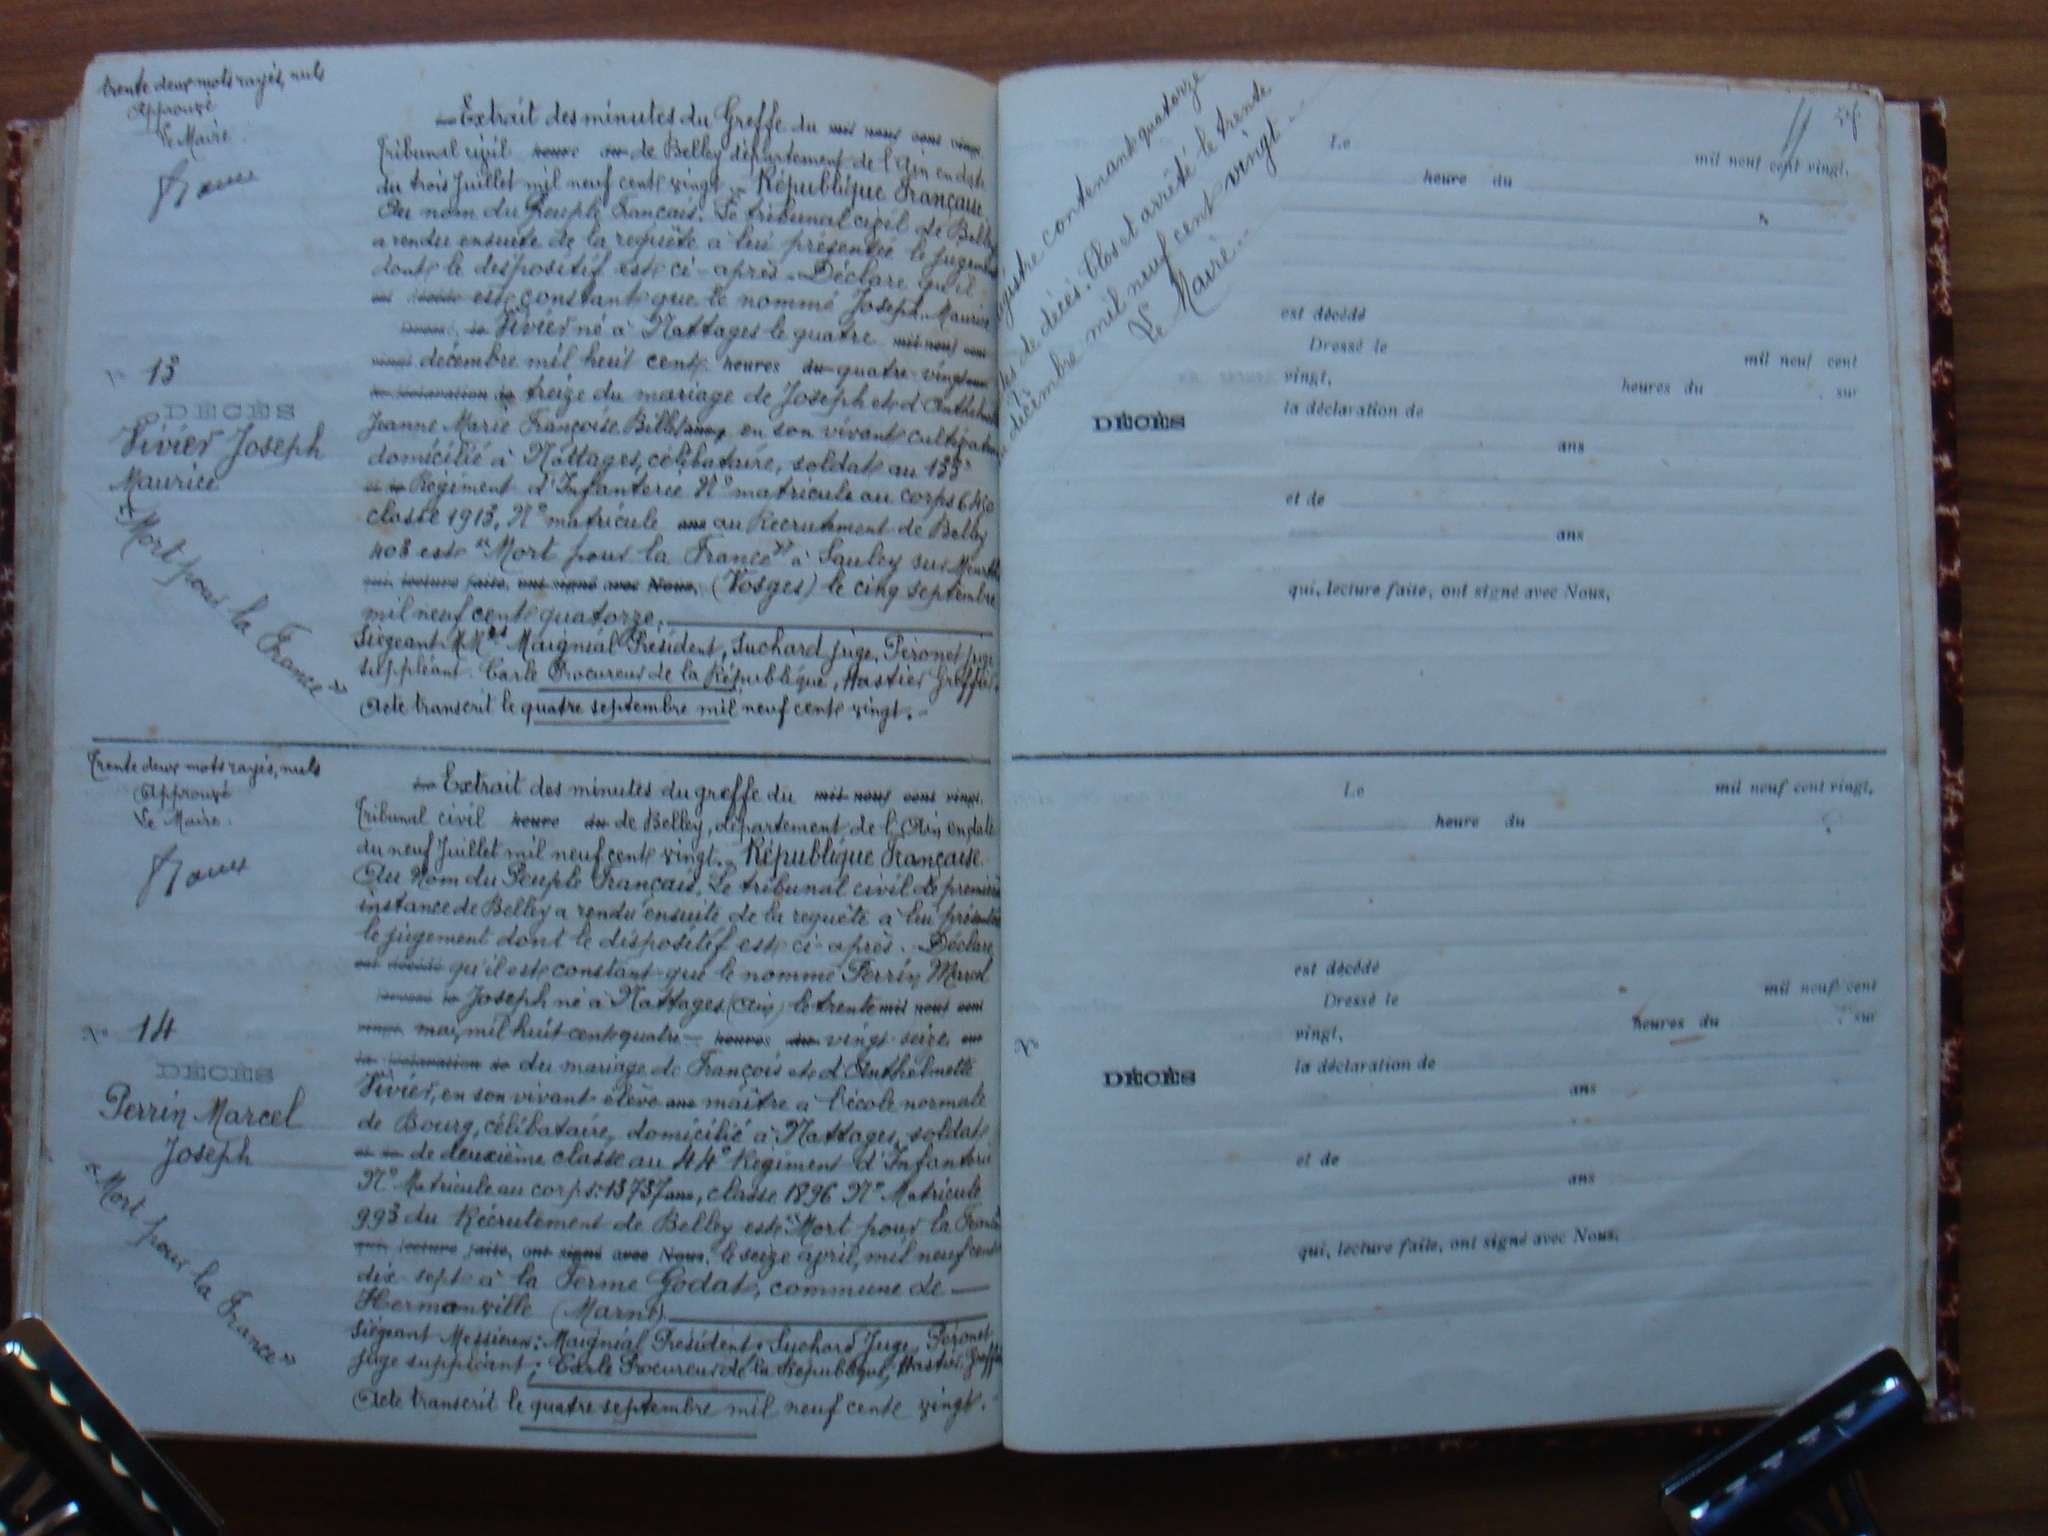 trente deux mots rayés, nuls
Approuvé
Le Maire.
Extrait des minutes du Greffe du mil neuf cent vingt,
Tribunal civil heure du de Belley département de l'Ain en date
du trois Juillet mil neuf cent vingt - République Française
Au nom du Peuple Français. Le tribunal civil de Belley
a rendu ensuite de la requête à lui présentée le jugement
dont le dispositif est ci-après - Déclare qu'il
est décédé est constant que le nommé Joseph Maurice
Dressé, le Vivier né à Nattages le quatre mil neuf cent
vingt décembre mil huit cent heures du quatre-vingt sur
la déclaration de treize du mariage de Joseph et d'Anthelmette
Jeanne Marie Françoise en son vivant cultivateur
domicilié à Nattages, célibataire, soldat au 133e
et de Régiment d'Infanterie No matricule au corps
classe 1913, No matricule ans au Recrutement de Belley
403 est "Mort pour la France" à Saulcy sur Meurthe
qui, lecture faite, ont signé avec Nous, (Vosges) le cinq septembre
mil neuf cent quatorze.
Siégeant MM. Maignial Président, Suchard juge, Péronet juge
suppléant. Carle Procureur de la République, Hastier Greffier.
Acte transcrit le quatre septembre mil neuf cent vingt.-
No 13
DÉCÈS
Vivier Joseph
Maurice
"Mort pour la France"
Trente deux mots rayés, nuls
Approuvé
Le Maire.
Le Extrait des minutes du greffe du mil neuf cent vingt,
Tribunal civil heure du de Belley, département de l'Ain en date
du neuf Juillet mil neuf cent vingt.- République Française.
Au Nom du Peuple Français. Le tribunal civil de première
instance de Belley a rendu ensuite de la requête à lui présentée
le jugement dont le dispositif est ci-après.- Déclare
est décédé qu'il est constant que le nommé Perrin Marcel
Dressé le Joseph né à Nattages (Ain) le trente mil neuf cent
vingt, mai, mil huit cent quatre- heures du vingt seize sur
la déclaration de du mariage de François et d'Anthelmette
Vivier, en son vivant élève ans maître à l'école normale
de Bourg, célibataire, domicilié à Nattages, soldat
et de de deuxième classe au 44e Régiment d'Infanterie
No Matricule au corps: 13737 ans, classe 1896 No Matricule
993 du Récrutement de Belley est "Mort pour la France
qui, lecture faite, ont signé avec Nous. le seize avril, mil neuf cent
dix-sept à la Ferme Godat, commune de
Hermonville (Marne).
Siégeant Messieurs: Maignial Président, Suchard Juge, Péronet
juge suppléant; Carle Procureur de la République, Hastier Greffier
Acte transcrit le quatre septembre mil neuf cent vingt.-
No 14
DÉCÈS
Perrin Marcel
Joseph
"Mort pour la France"
registre contenant quatorze
actes de décès. Clos et arrêté le trente
décembre mil neuf cent vingt -
Le Maire -
Le mil neuf cent vingt,
heure du
est décédé
Dressé le mil neuf cent
vingt, heures du , sur
la déclaration de
ans
et de
ans
qui, lecture faite, ont signé avec Nous,
DÉCÈS
Le mil neuf cent vingt,
heure du
est décédé
Dressé le mil neuf cent
vingt, heures du , sur
la déclaration de
ans
et de
ans
qui, lecture faite, ont signé avec Nous,
No
DÉCÈS